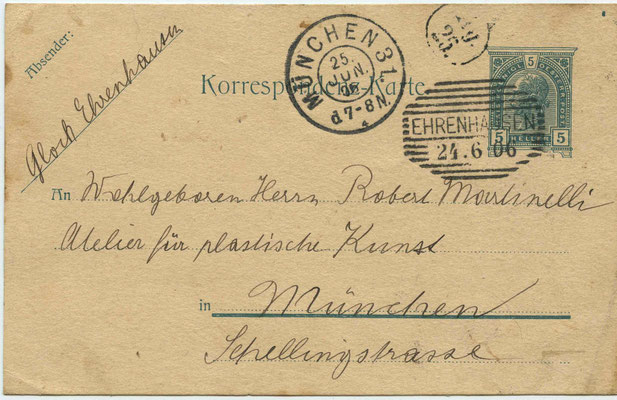 Absender:
Glock Ehrenhausen
Korrespondenz-Karte.
MÜNCHEN 31.
25.
JUN.
06
7-8 N.
25.
5
5 HELLER 5
EHRENHAUSEN
24.6 06
An Wohlgeboren Herrn Robert Martinelli
Atelier für plastische Kunst
in München
Schellingstrasse